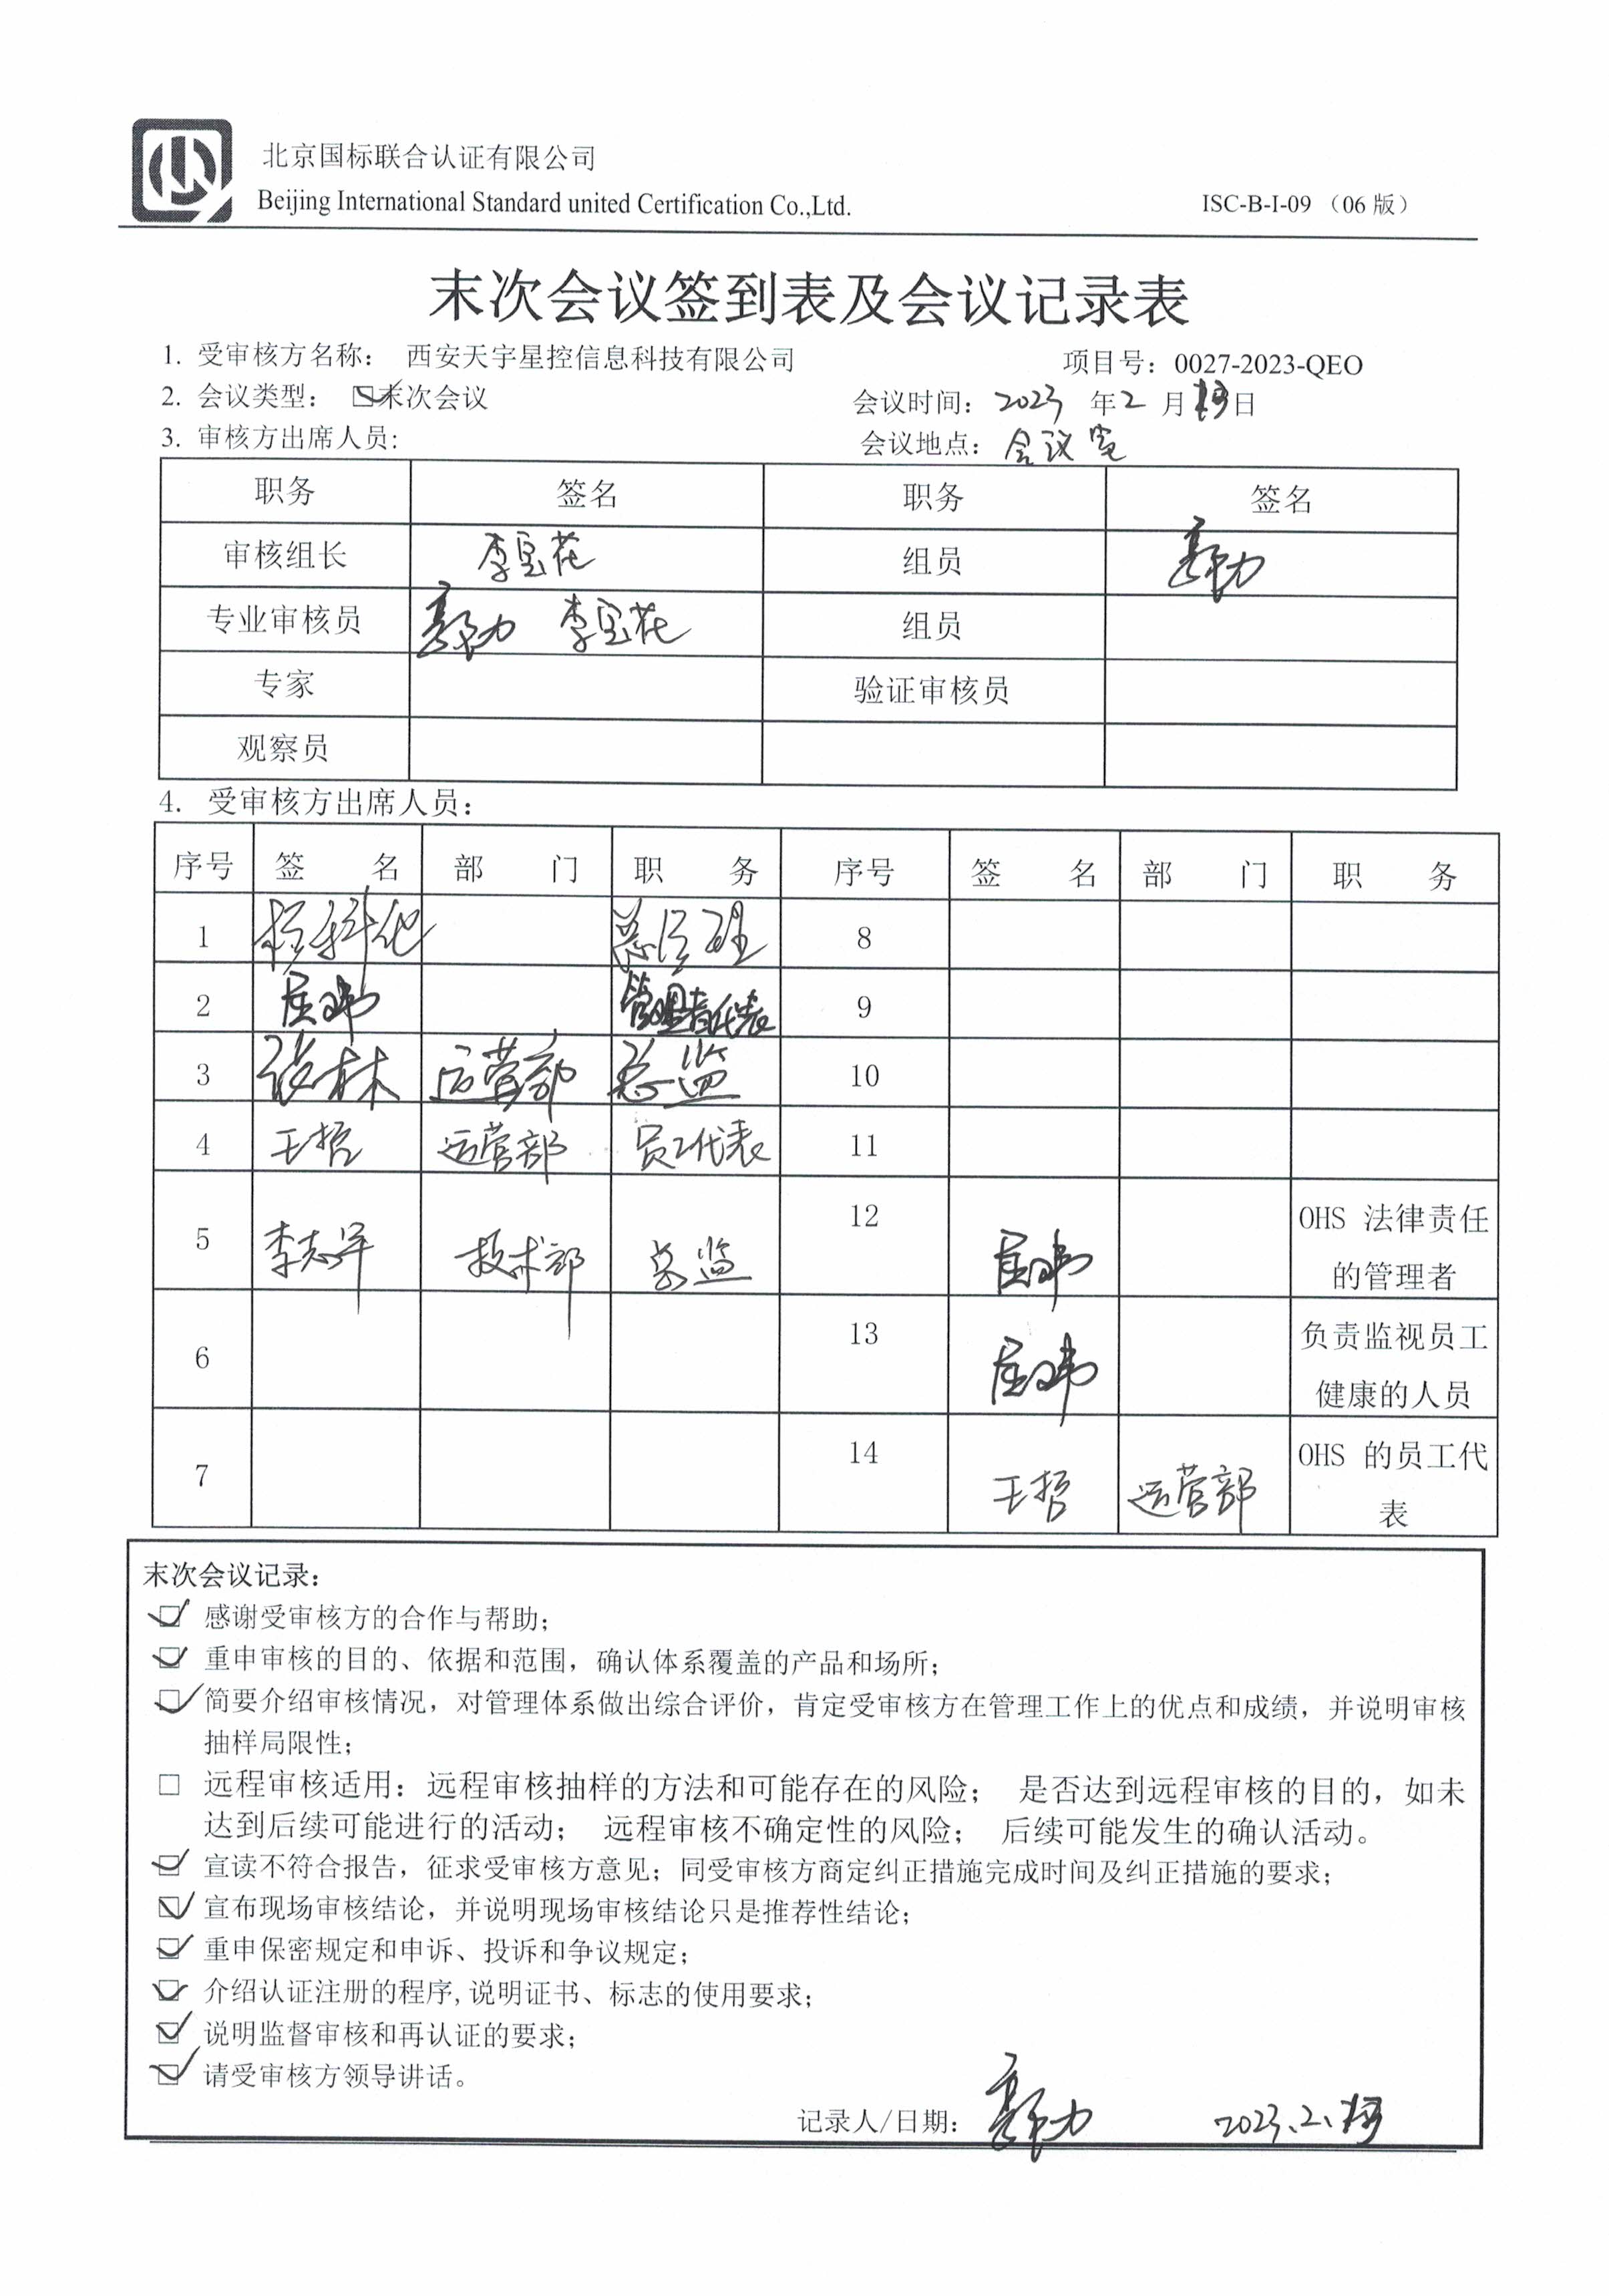 北京国标联合认证有限公司
Beijing International Standard united Certification Co.,Ltd.
ISC-B-I-09 （06 版）
末次会议签到表及会议记录表
1. 受审核方名称： 西安天宇星控信息科技有限公司 项目号：0027-2023-QEO
2. 会议类型： ☑末次会议 会议时间：2023 年 2 月 日
3. 审核方出席人员: 会议地点：会议室
职务 签名 职务 签名
审核组长 李宝花 组员
专业审核员 李宝花 组员
专家 验证审核员
观察员
4. 受审核方出席人员：
序号 签 名 部 门 职 务 序号 签 名 部 门 职 务
1 总经理 8
2 屈玮 管理者代表 9
3 林 运营部 总监 10
4 王哲 运营部 员工代表 11
5 李志军 技术部 总监 12 屈玮 OHS 法律责任
的管理者
6 13 屈玮 负责监视员工
健康的人员
7 14 王哲 运营部 OHS 的员工代
表
末次会议记录：
☑ 感谢受审核方的合作与帮助；
☑ 重申审核的目的、依据和范围，确认体系覆盖的产品和场所；
☑ 简要介绍审核情况，对管理体系做出综合评价，肯定受审核方在管理工作上的优点和成绩，并说明审核
抽样局限性；
□ 远程审核适用：远程审核抽样的方法和可能存在的风险； 是否达到远程审核的目的，如未
达到后续可能进行的活动； 远程审核不确定性的风险； 后续可能发生的确认活动。
☑ 宣读不符合报告，征求受审核方意见；同受审核方商定纠正措施完成时间及纠正措施的要求；
☑ 宣布现场审核结论，并说明现场审核结论只是推荐性结论；
☑ 重申保密规定和申诉、投诉和争议规定；
☑ 介绍认证注册的程序,说明证书、标志的使用要求；
☑ 说明监督审核和再认证的要求；
☑ 请受审核方领导讲话。
记录人/日期： 2023.2.